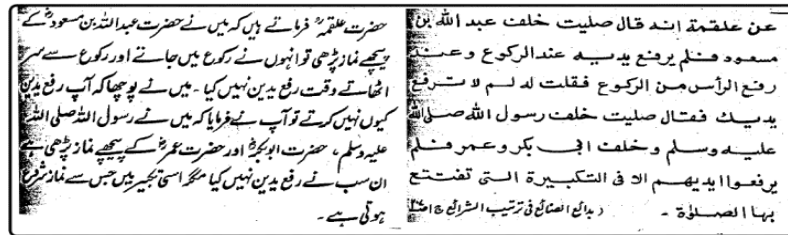 عن علقمة انه قال صليت خلف عبد الله بن
مسعود فلم يرفع يديه عند الركوع وعند
رفع الرأس من الركوع فقلت له لم لا ترفع
يديك فقال صليت خلف رسول الله صلى الله
عليه وسلم وخلف ابى بكر وعمر فلم
يرفعوا ايديهم الا فى التكبيرة التى تفتتح
بها الصلوٰة - (بدائع الصنائع فى ترتيب الشرائع ج
حضرت علقمہؒ فرماتے ہیں کہ میں نے حضرت عبداللہ بن مسعودؓ کے
پیچھے نماز پڑھی تو انہوں نے رکوع میں جاتے اور رکوع سے سر
اٹھاتے وقت رفع یدین نہیں کیا۔ میں نے پوچھا کہ آپ رفع یدین
کیوں نہیں کرتے تو آپ نے فرمایا کہ میں نے رسول اللہ صلی اللہ
علیہ وسلم، حضرت ابوبکرؓ اور حضرت عمرؓ کے پیچھے نماز پڑھی ہے
ان سب نے رفع یدین نہیں کیا مگر اسی تکبیر میں جس سے نماز شروع
ہوتی ہے۔